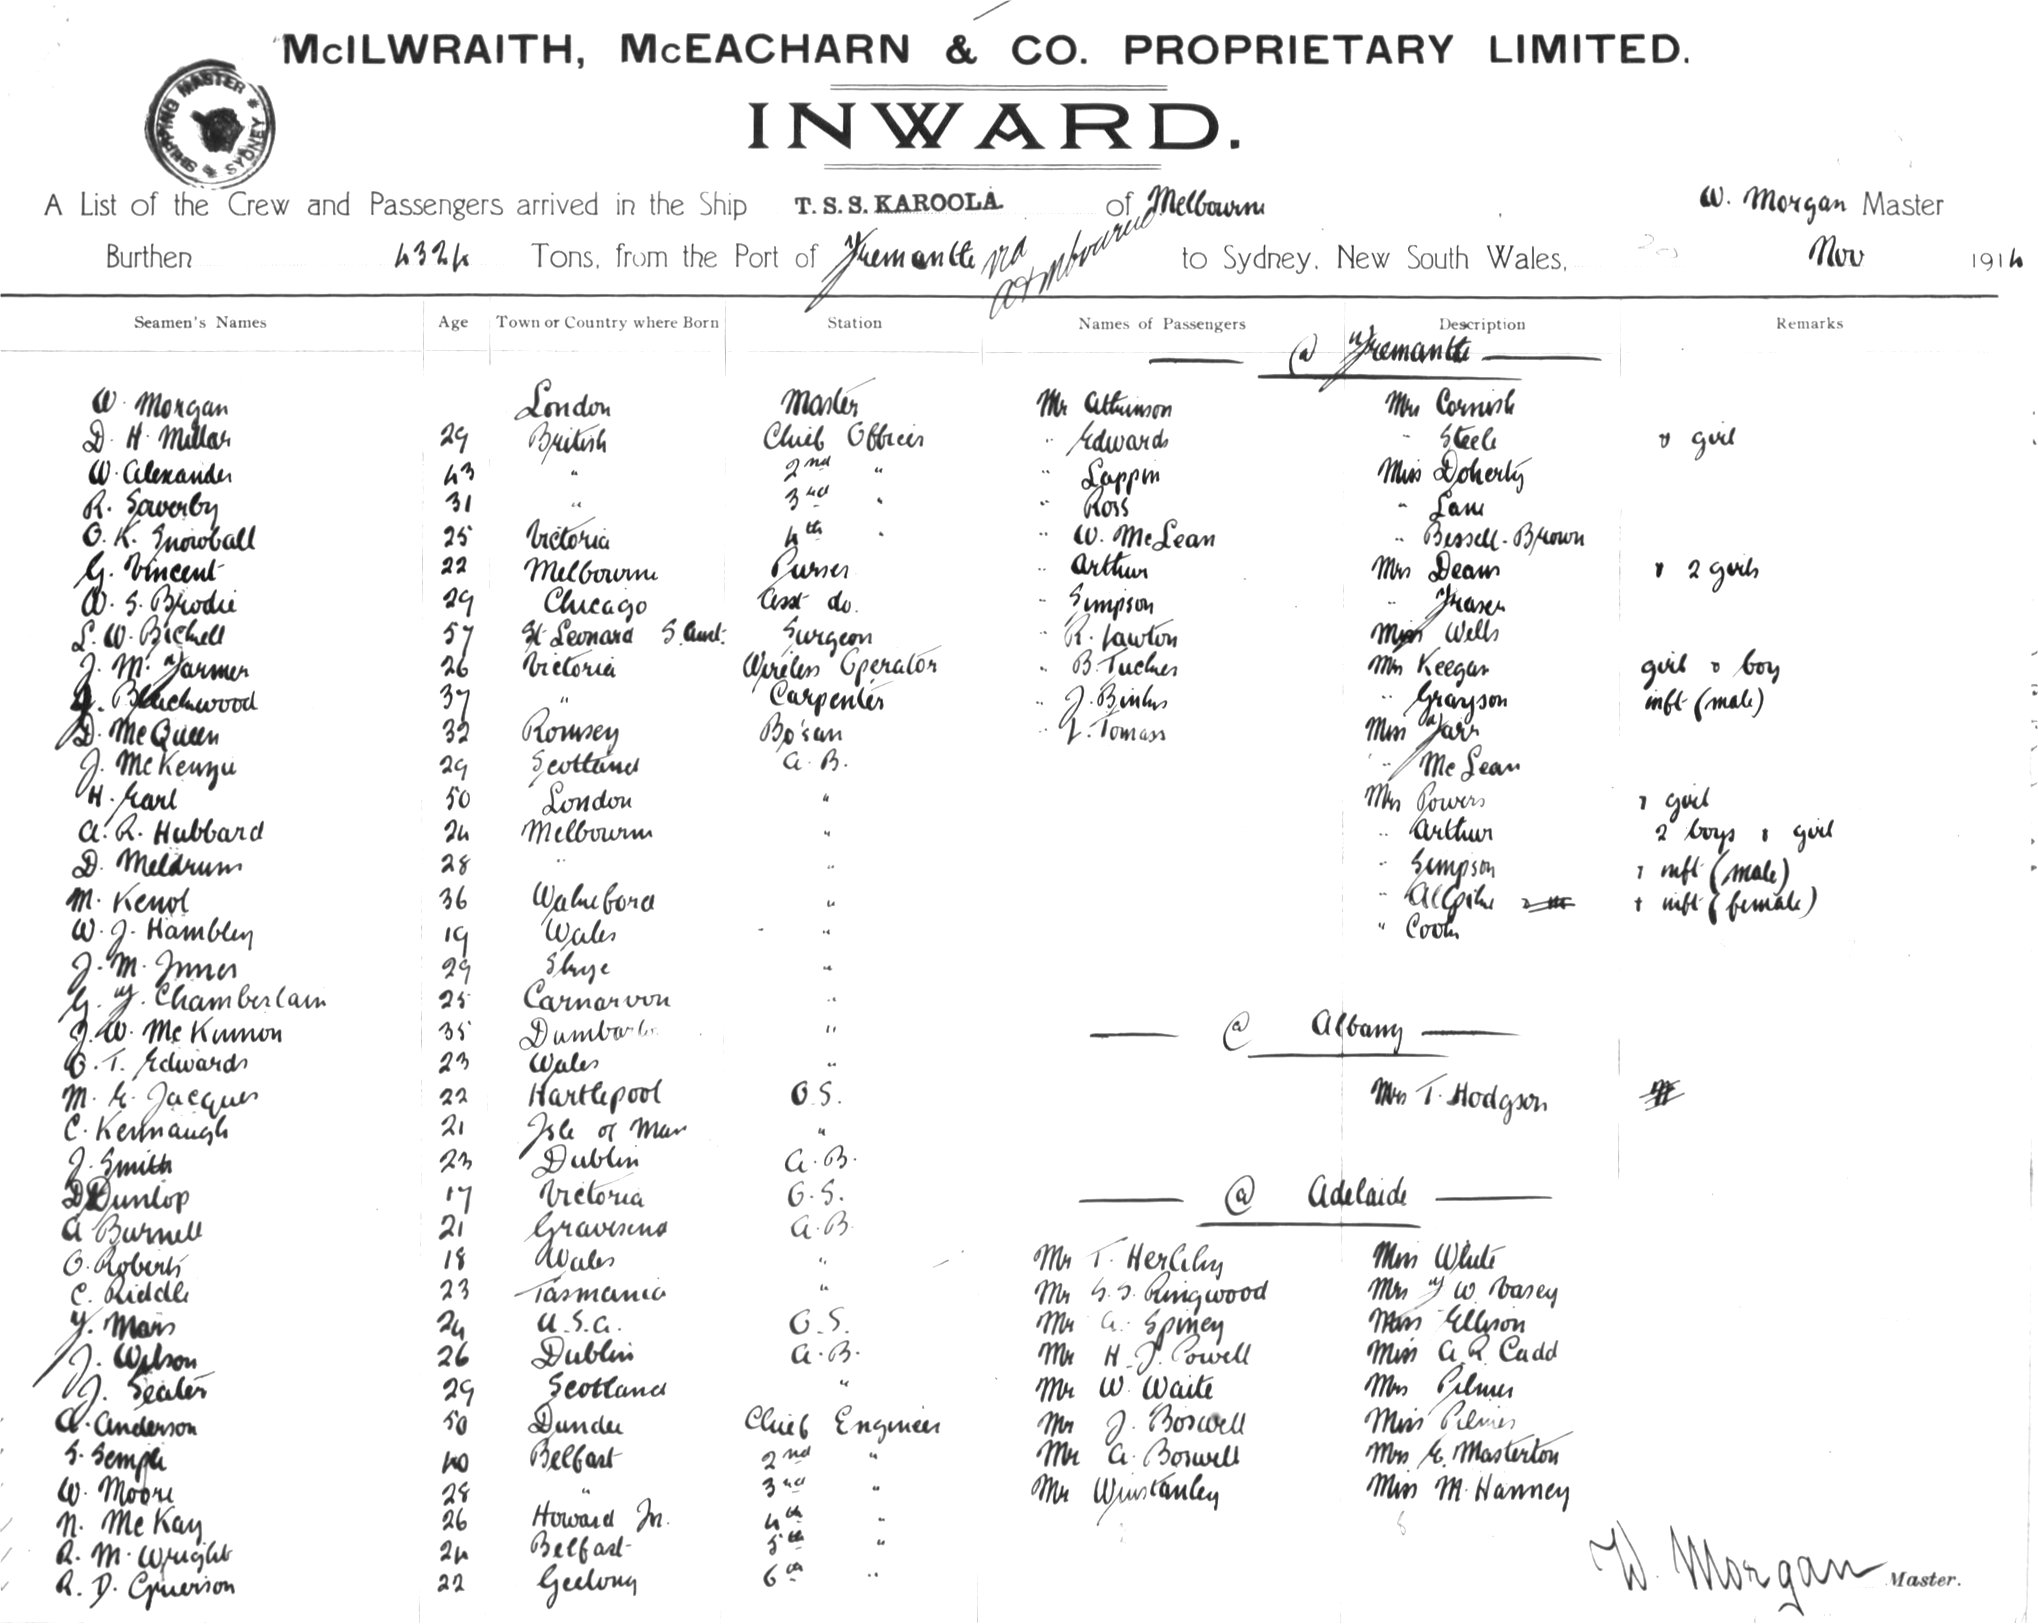 McILWRAITH, McEACHARN & CO. PROPRIETARY LIMITED.
INWARD.
SHIPPING MASTER * SYDNEY *
A List of the Crew and Passengers arrived in the Ship T.S.S. KAROOLA. of Melbourne W. Morgan Master
Burthen 4324 Tons, from the Port of Fremantle via to Sydney, New South Wales, Nov 1914
Seamen's Names Age Town or Country where Born Station Names of Passengers Description Remarks
@ Fremantle
W. Morgan London Master Mr Atkinson Mrs Cornish
D. H. Millar 29 British Chief Officer " Edwards " Steele & girl
W. Alexander 43 " 2nd " " Lappin Miss Doherty
R. Sowerby 31 " 3rd " " Ross " Lane
O. K. Snowball 25 Victoria 4th " " W. McLean " Bessell-Brown
G. Vincent 22 Melbourne Purser " Arthur Mrs Deans & 2 girls
W. S. Brodie 29 Chicago Asst do. " Simpson " Fraser
L. W. Bicknell 57 St Leonard S. Surgeon " R. Lawton Miss Wells
J. M. Farmer 26 Victoria Wireless Operator " B. Tucker Mrs Keegan girl & boy
J. Blackwood 37 " Carpenter " J. Binks " Grayson inft (male)
D. McQueen 32 Romsey Bo'sun " L. Tomass Miss Farr
J. McKenzie 29 Scotland A.B. " McLean
H. Earl 50 London " Mrs Powers & girl
A. R. Hubbard 24 Melbourne " " Arthur 2 boys & girl
D. Meldrum 28 " " " Simpson & inft (male)
M. Kenol 36 " " & inft (female)
W. J. Hambley 19 Wales " " Cook
J. M. Innes 29 Skye "
G. F. Chamberlain 25 Carnarvon "
J. W. McKinnon 35 " @ Albany
O. T. Edwards 23 Wales "
M. E. Jacques 22 Hartlepool O.S. Mrs T. Hodgson
C. Kennaugh 21 Isle of Man "
J. Smith 23 Dublin A.B.
D Dunlop 17 Victoria O.S. @ Adelaide
A Burnell 21 Gravesend A.B.
O. Roberts 18 Wales " Mr T. Herlihy Miss White
C. Riddle 23 Tasmania " Mr S. S. Ringwood Mrs F W. Vasey
F. Mars 24 U.S.A. O.S. Mr A. Spiney Miss Ellison
J. Wilson 26 Dublin A.B. Mr H. J. Powell Miss A. R. Cadd
J. Seater 29 Scotland " Mr W. Waite Mrs Pilmer
A. Anderson 50 Dundee Chief Engineer Mr J. Boswell Miss Pilmer
S. Semple 40 Belfast 2nd " Mr A. Boswell Mrs E. Masterton
W. Moore 28 " 3rd " Mr Winstanley Miss M. Hanney
N. McKay 26 Howard 4th "
R. M. Wright 24 Belfast 5th "
R. D. Grierson 22 Geelong 6th "
W. Morgan Master.